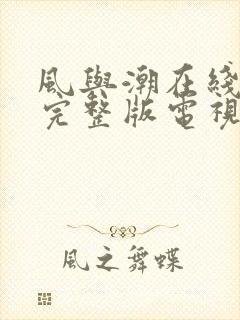 風與潮在綫
完整版電視
風之舞蝶